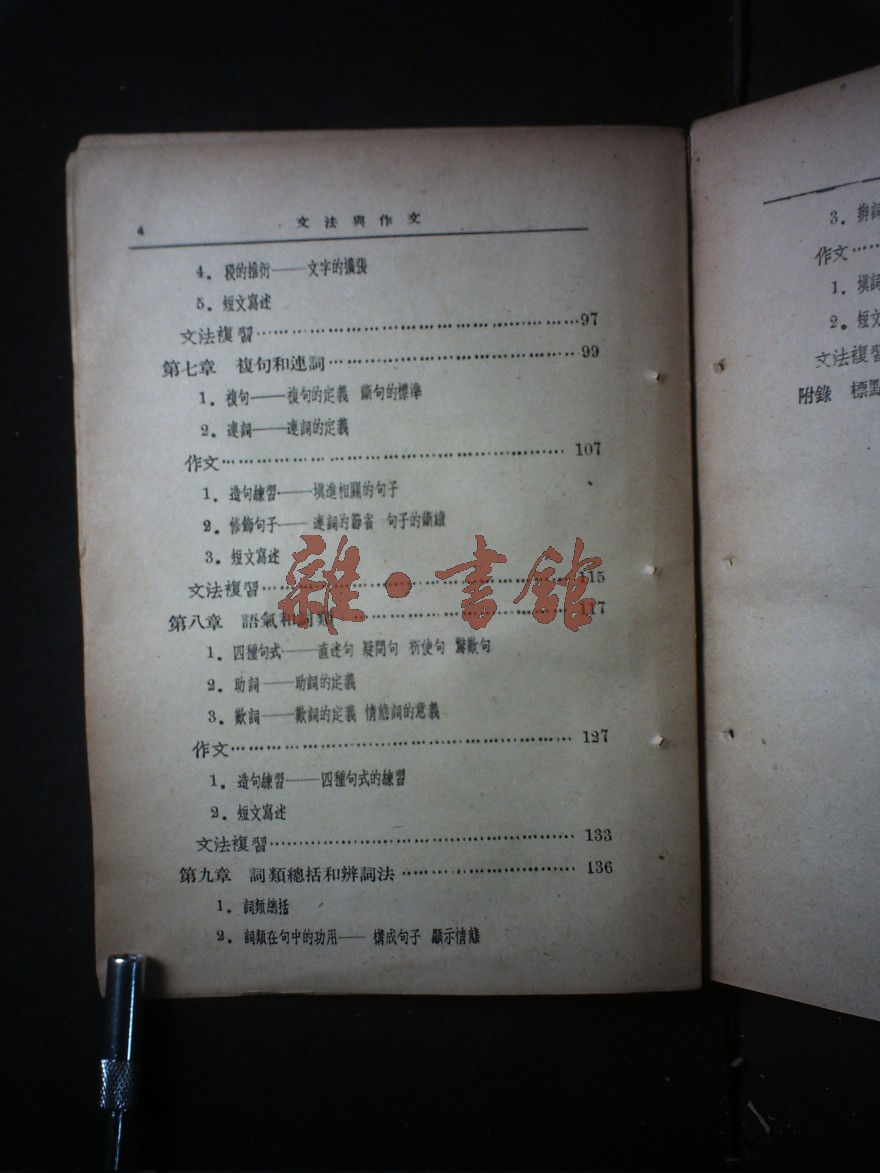 4 文法與作文
4. 稅的推衍——文字的擴張
5. 短文寫述
文法複習……………………………………97
第七章 複句和連詞……………………………99
1. 複句——複句的定義 斷句的標準
2. 連詞——連詞的定義
作文……………………………………107
1. 造句練習——填進相關的句子
2. 修飾句子——連詞的節省 句子的斷續
3. 短文寫述
文法複習……………………………………115
第八章 語氣和詞類……………………………117
1. 四種句式——直述句 疑問句 祈使句 驚歎句
2. 助詞——助詞的定義
3. 歎詞——歎詞的定義 情態詞的意義
作文……………………………………127
1. 造句練習——四種句式的練習
2. 短文寫述
文法複習……………………………………133
第九章 詞類總括和辨詞法……………………136
1. 詞類總括
2. 詞類在句中的功用——構成句子 顯示情態
雜·書館
3. 辨詞
作文……
1. 填詞
2. 短文
文法複習
附錄 標點